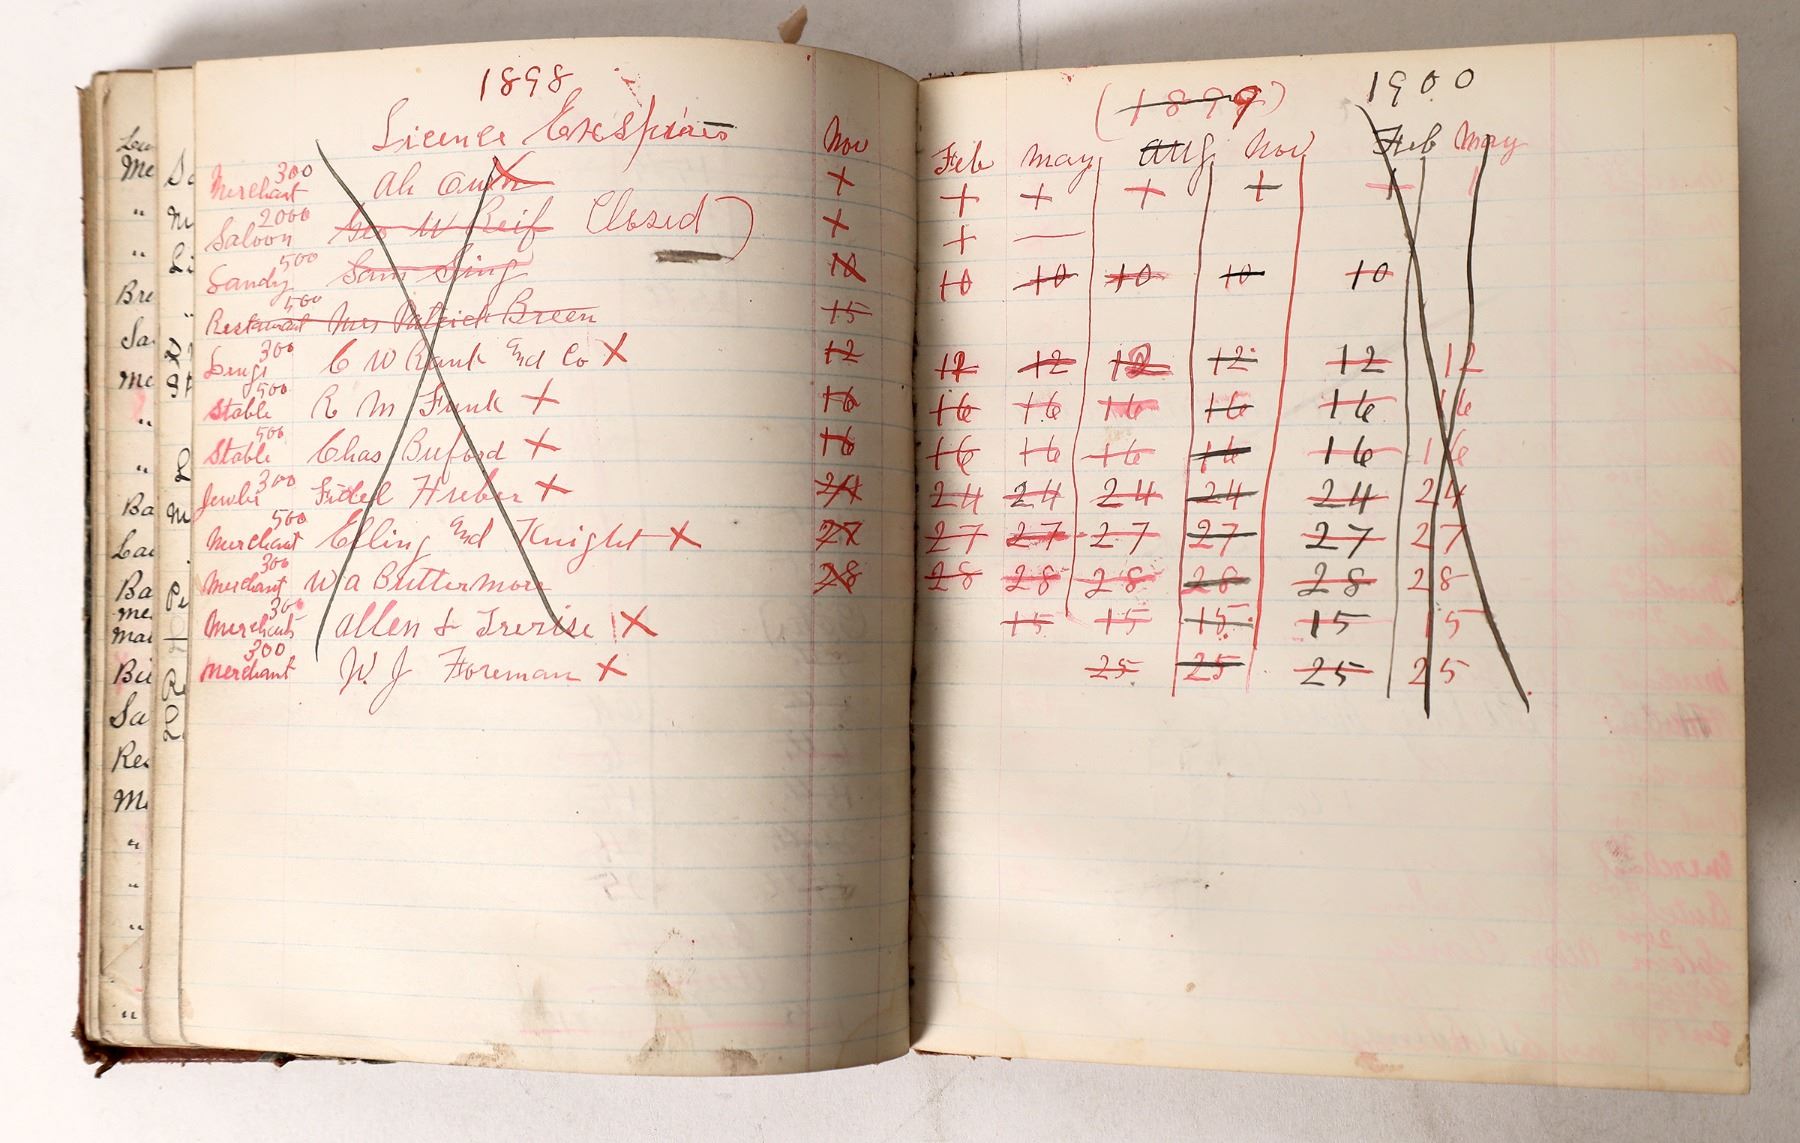 1898
Licence Exspiars Nov
Merchant 300 Ah Quin +
Saloon 2000 Geo W Reif Closed) +
500 Sam Sing 10
Restaurant 500 Mrs Patrick Breen 15
300 C W Rank and Co X 12
Stable 500 R M Funk + 16
Stable 500 Chas Buford + 16
300 Fidel Hueber + 24
Merchant 500 Elling and Knight X 27
Merchant 300 W A Buttermore 28
Merchants 300 Allen & Trerise X
Merchant 300 W. J Foreman X
(1899) 1900
Feb May Aug Nov Feb May
+ + + + + 1
+ —
10 10 10 10 10
12 12 12 12 12 12
16 16 16 16 16 16
16 16 16 16 16 16
24 24 24 24 24 24
27 27 27 27 27 27
28 28 28 28 28 28
15 15 15 15 15
25 25 25 25